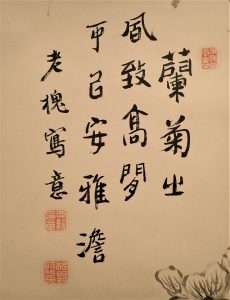 蘭菊之
風致高閒
可㠯安雅澹
老槐寫意